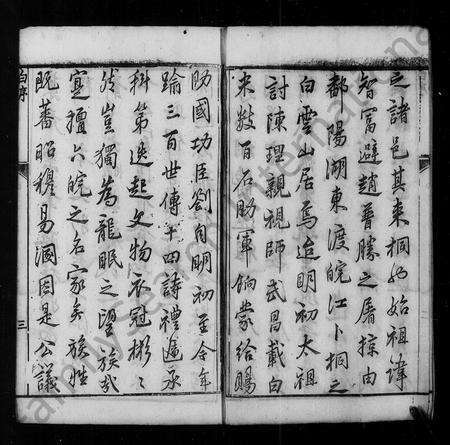 之諸邑其来桐也始祖諱
智富避趙普勝之屠掠由
鄱陽湖東渡皖江卜桐之
白雲山居焉迨明初太祖
討陳理親視師武昌載白
米数百石助軍餉蒙给賜
助國功臣劄自明初至今年
踰三百世傳十四詩禮遞承
科第迭起文物衣冠彬〻
然豈獨為龍眠之望族哉
寔擅六皖之名家矣族姓
既蕃昭穆易溷因是公議
白序
三
FamilySearch International